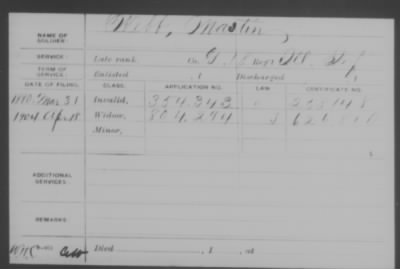 NAME OF SOLDIER: Webb, Martin,
SERVICE: Late rank, Co. Reg't Ill. Inf.
TERM OF SERVICE: Enlisted , 1 Discharged , 1
DATE OF FILING. CLASS. APPLICATION NO. LAW. CERTIFICATE NO.
1880 Mar 31 Invalid, 354,343
1904 Apr 18 Widow, 804,294
Minor,
ADDITIONAL SERVICES:
REMARKS:
Died , 1 , at